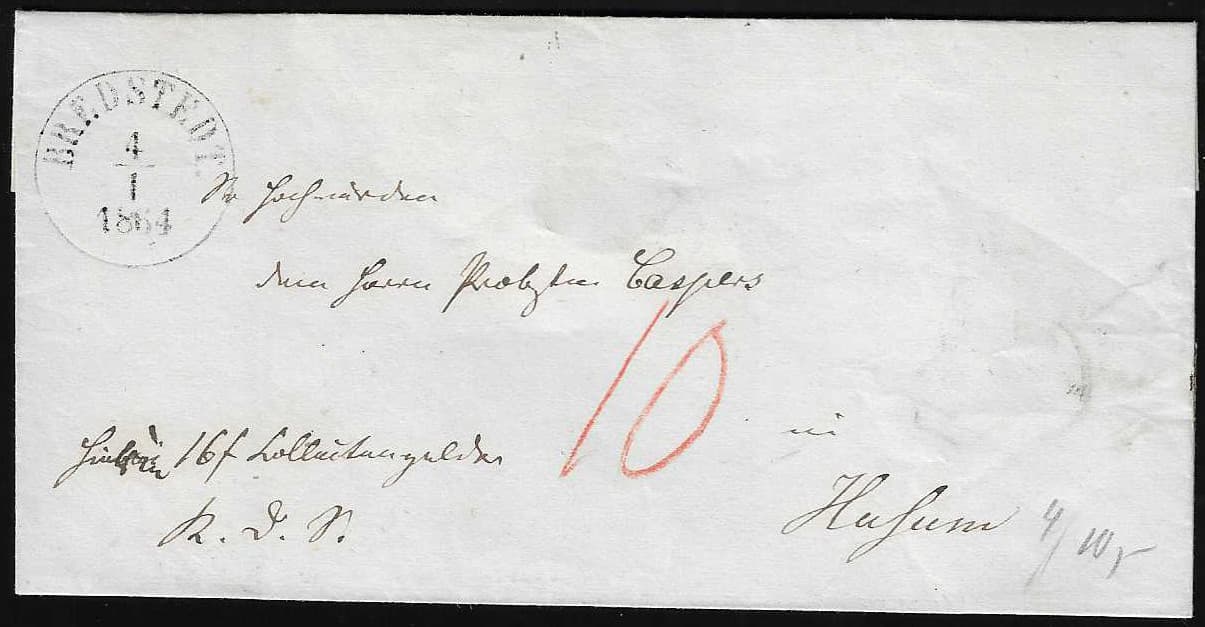 BREDSTEDT.
4
1
1864
Sr Hochwürden
dem Herrn Probsten Caspers
10
in
16 f Collectengelder
K. D. S.
Husum
4/10,-